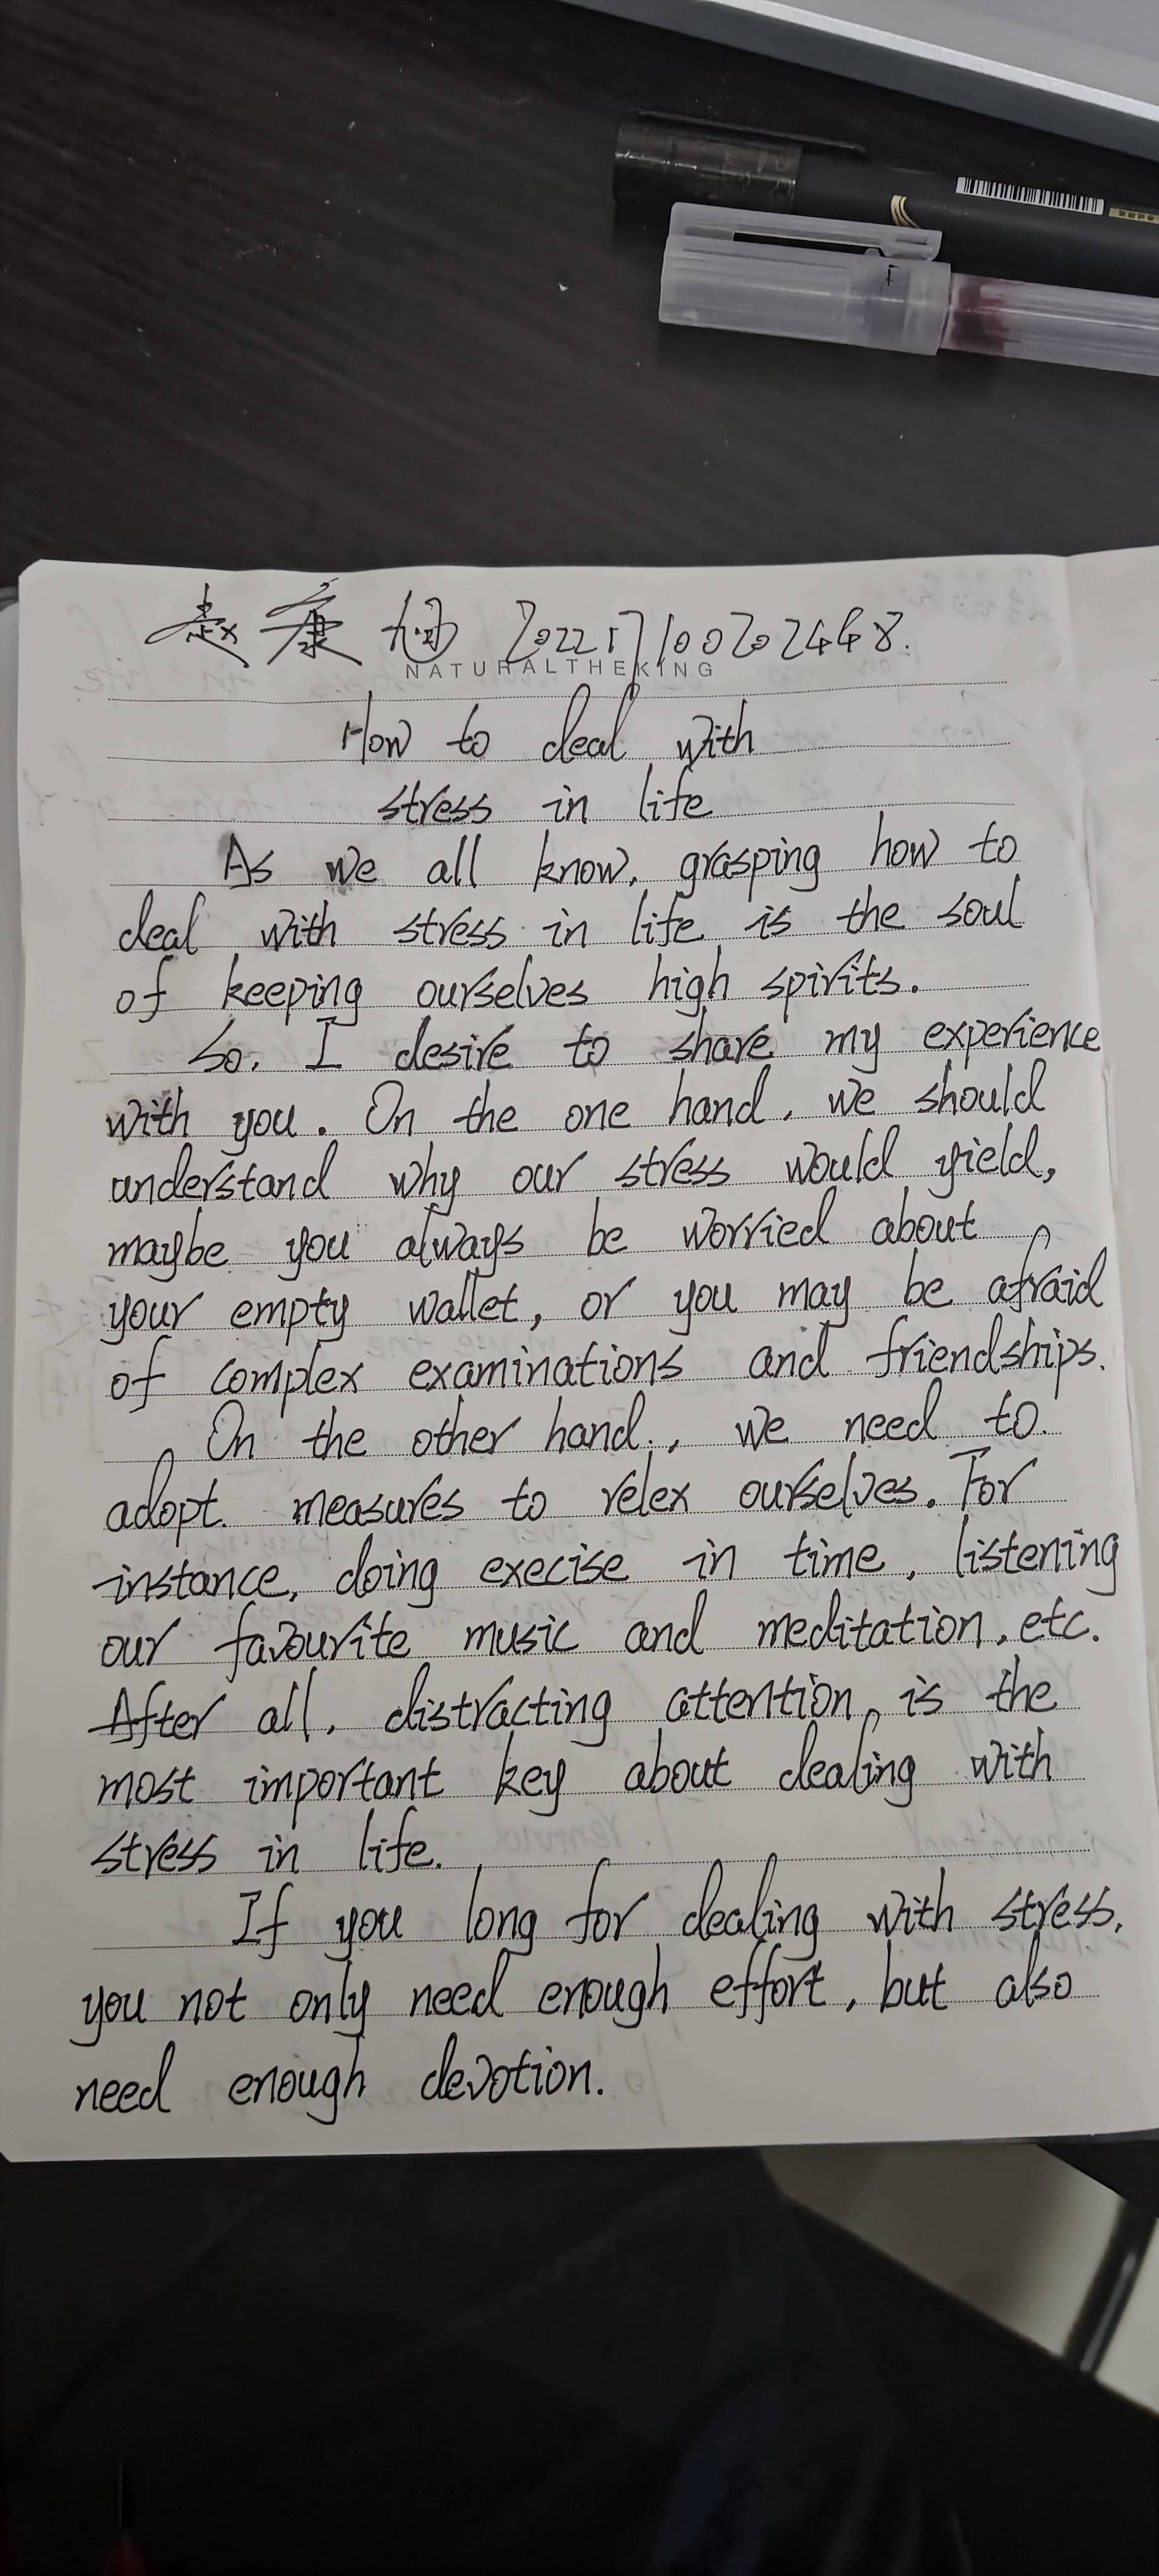 赵康旭 202217100202448.
NATURALTHEKING
How to deal with
stress in life
As we all know, grasping how to
deal with stress in life is the soul
of keeping ourselves high spirits.
So, I desire to share my experience
with you. On the one hand, we should
understand why our stress would yield,
maybe you always be worried about
your empty wallet, or you may be afraid
of complex examinations and friendships.
On the other hand, we need to
adopt measures to relex ourselves. For
instance, doing execise in time, listening
our favourite music and meditation, etc.
After all, distracting attention is the
most important key about dealing with
stress in life.
If you long for dealing with stress,
you not only need enough effort, but also
need enough devotion.